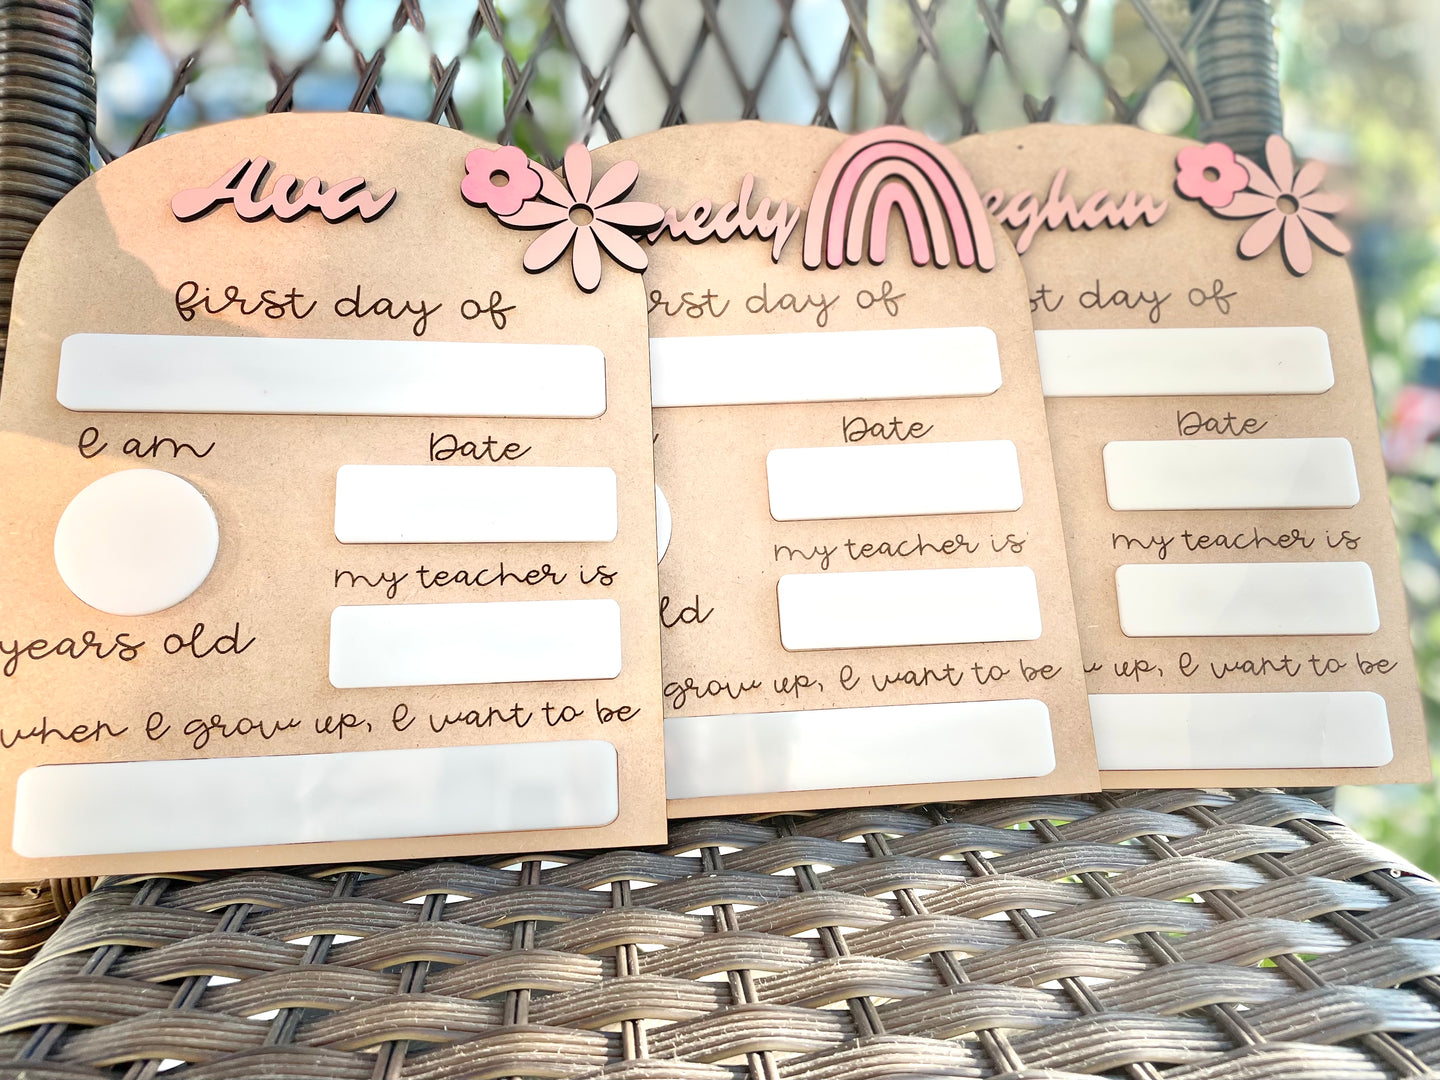 Ava
first day of
I am
Date
my teacher is
years old
when I grow up, I want to be
nedy
rst day of
Date
my teacher is
ld
grow up, I want to be
eghan
st day of
Date
my teacher is
w up, I want to be